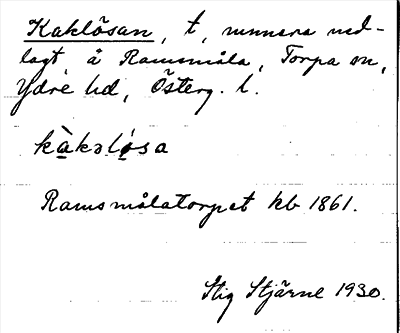 Kaklösan, t, numera ned-
lagt, å Ramsmåla, Torpa sn,
Ydre hd, Österg. l.
kàkslösa
Ramsmålatorpet kb 1861.
Stig Stjärne 1930.